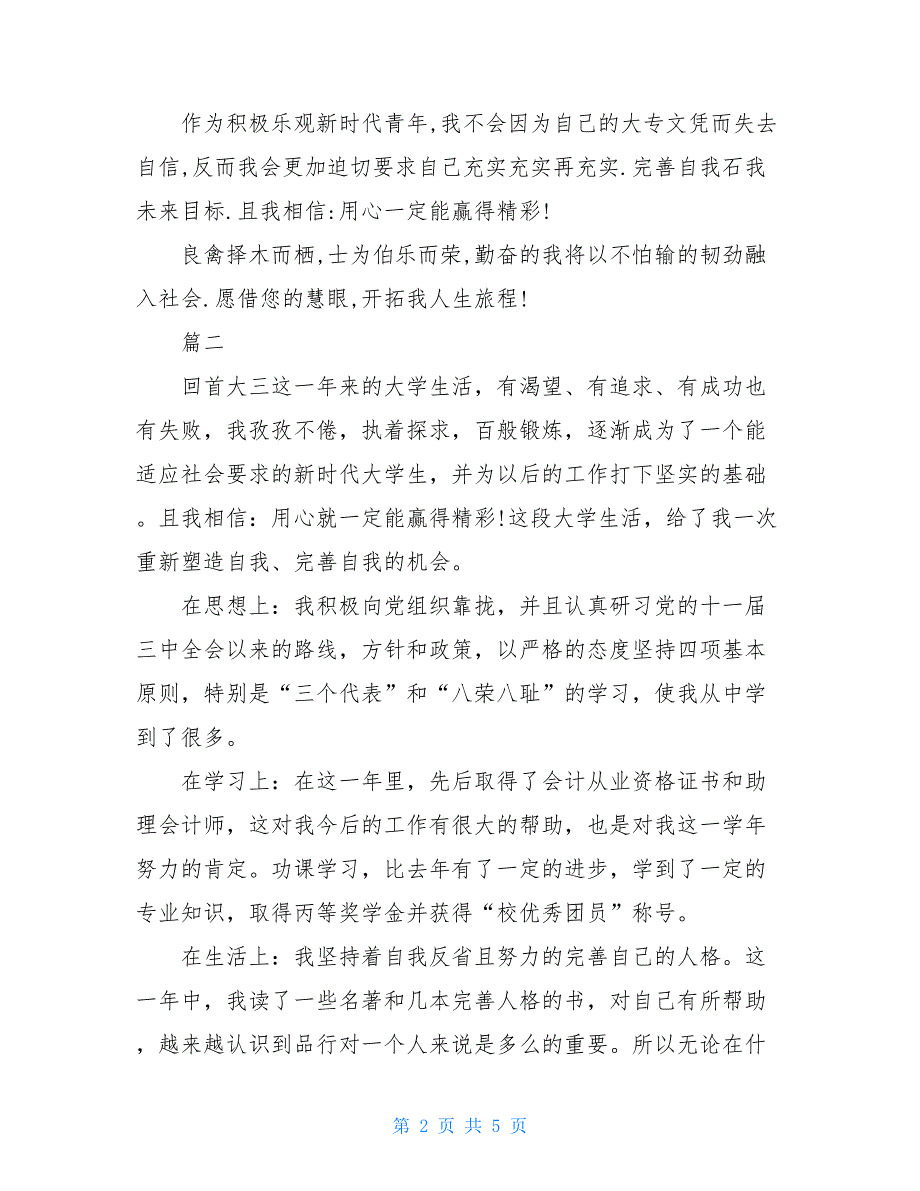 作为积极乐观新时代青年,我不会因为自己的大专文凭而失去
自信,反而我会更加迫切要求自己充实充实再充实.完善自我石我
未来目标.且我相信:用心一定能赢得精彩!
良禽择木而栖,士为伯乐而荣,勤奋的我将以不怕输的韧劲融
入社会.愿借您的慧眼,开拓我人生旅程!
篇二
回首大三这一年来的大学生活，有渴望、有追求、有成功也
有失败，我孜孜不倦，执着探求，百般锻炼，逐渐成为了一个能
适应社会要求的新时代大学生，并为以后的工作打下坚实的基础
。且我相信：用心就一定能赢得精彩!这段大学生活，给了我一次
重新塑造自我、完善自我的机会。
在思想上：我积极向党组织靠拢，并且认真研习党的十一届
三中全会以来的路线，方针和政策，以严格的态度坚持四项基本
原则，特别是“三个代表”和“八荣八耻”的学习，使我从中学
到了很多。
在学习上：在这一年里，先后取得了会计从业资格证书和助
理会计师，这对我今后的工作有很大的帮助，也是对我这一学年
努力的肯定。功课学习，比去年有了一定的进步，学到了一定的
专业知识，取得丙等奖学金并获得“校优秀团员”称号。
在生活上：我坚持着自我反省且努力的完善自己的人格。这
一年中，我读了一些名著和几本完善人格的书，对自己有所帮助
，越来越认识到品行对一个人来说是多么的重要。所以无论在什
第 2 页 共 5 页